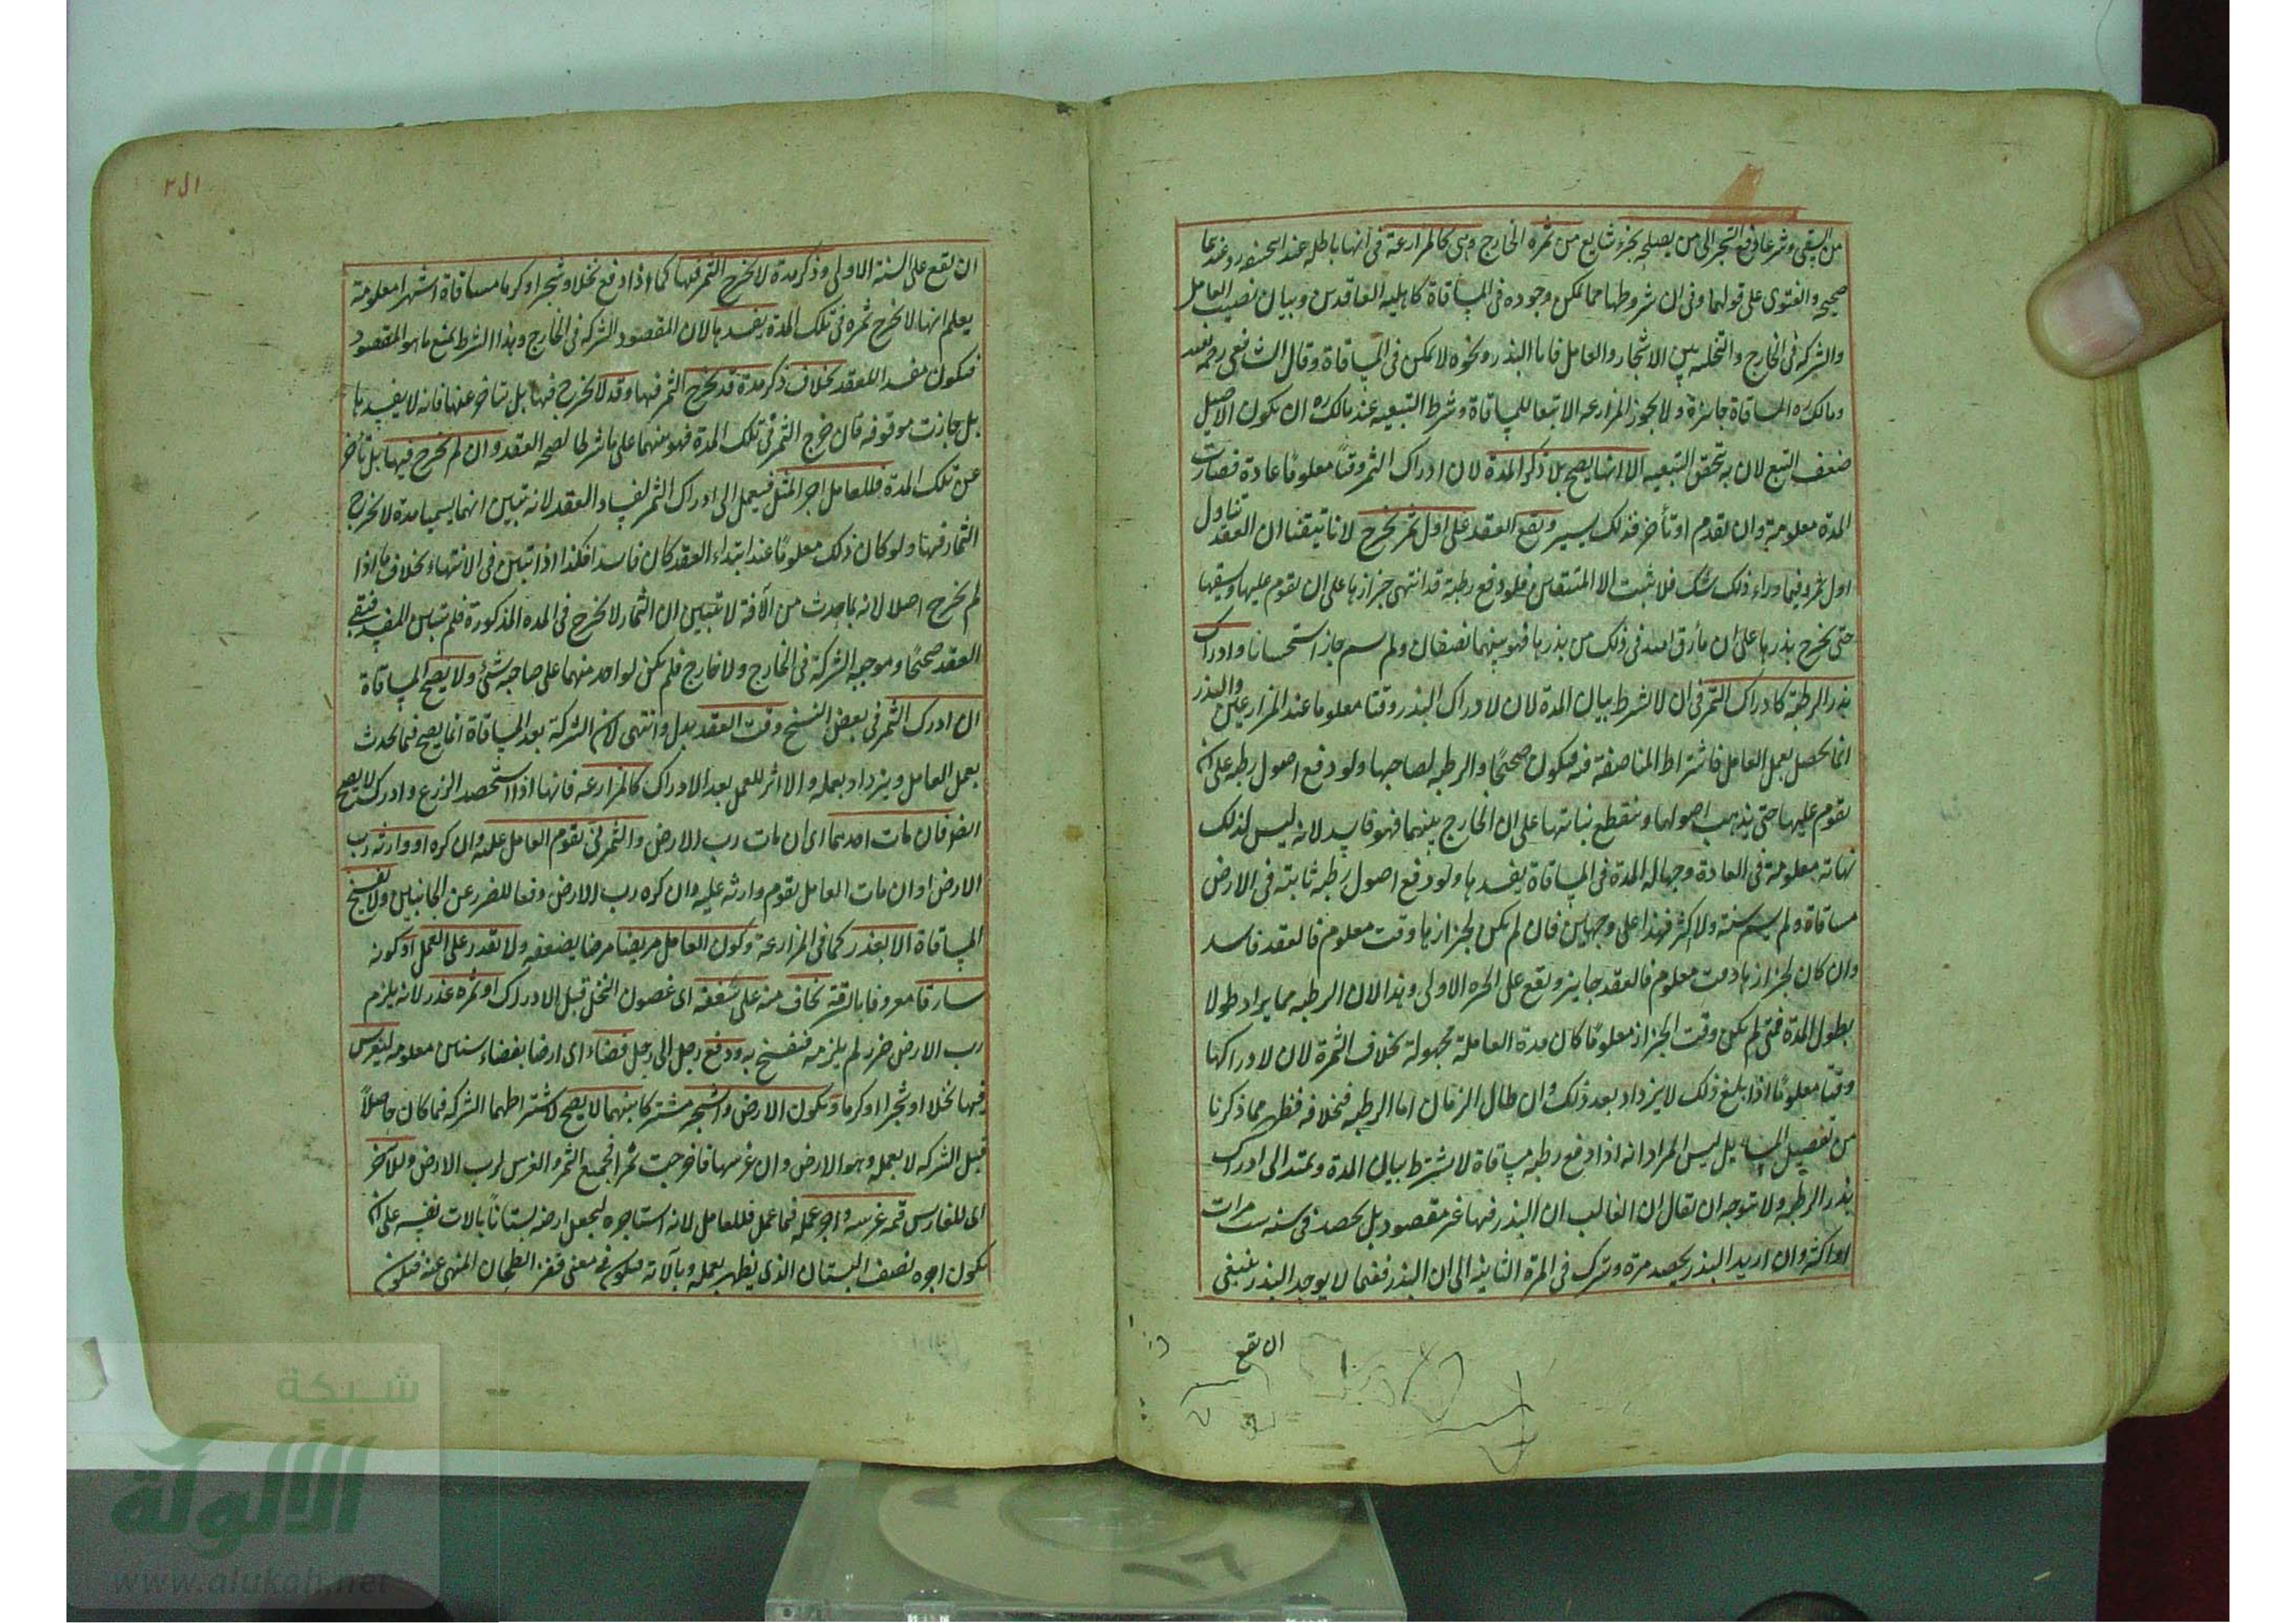 من السقي وشرعا دفع الشجر الى من يصلحه بجزء شايع من ثمره الخارج وهي كالمزارعة في انها باطله عند ابي حنيفه وعندهما
صحيحه والفتوى على قولهما وفي ان شروطها مما يمكن وجوده في المساقاة كاهليه العاقدين وبيان نصيب العامل
والشركه في الخارج والتخليه بين الاشجار والعامل فاما البذر ونحوه لا يمكن في المساقاة وقال الشافعي رحمه
ومالك ره المساقاة جايزة ولا يجوز المزارعه الا تبعا للمساقاة وشرط التبعيه عند مالك ره ان يكون الاصيل
ضعف التبع لان به تحقق التبعيه الا انها يصح بلا ذكر المدة لان ادراك الثمر وقتا معلومًا عادة فصارت
المدة معلومة وان تقدم او تأخر فذلك يسير ويقع العقد على اول ثمر يخرج لانا تيقنا ان العقد تناول
اول ثمر وفيما وراء ذلك شك فلا يثبت الا المتيقن فلو دفع رطبة قد انتهى جزازها على ان يقوم عليها ويسقيها
حتى يخرج بذرها على ان ما رزق الله في ذلك من بذرها فهو بينهما نصفان ولم يسم جاز استحسانا وادراك
بذر الرطبة كادراك الثمر في ان لا يشرط بيان المدة لان لادراك البذر وقتا معلوما عند المزارعين والبذر
انما يحصل بعمل العامل فاشتراط المناصفة فيه فيكون صحيحًا والرطبه لصاحبها ولو دفع اصول رطبه على ان
يقوم عليها حتى يذهب اصولها وينقطع نباتها على ان الخارج بينهما فهو فاسد لانه ليس لذلك
نهاية معلومة في العادة وجهاله المدة في المساقاة يفسدها ولو دفع اصول رطبه ثابتة في الارض
مساقاة ولم يسم سنة ولا اكثر فهذا على وجهين فان لم يكن لجزازها وقت معلوم فالعقد فاسد
وان كان لجزازها وقت معلوم فالعقد جايز ويقع على الجزه الاولى وهذا لان الرطبه مما يزاد طولا
بطول المدة فمتى لم يكن وقت الجزاز معلومًا كان مدة العاملة مجهولة بخلاف الثمرة لان لادراكها
وقتا معلومًا اذا بلغ ذلك لا يزداد بعد ذلك وان طال الزمان اما الرطبه فبخلافه فظهر مما ذكرنا
من تفصيل المسايل ليس المراد انه اذا دفع رطبه مساقاة لا يشترط بيان المدة ويمتد الى ادراك
بذر الرطبه ولا يتوجه ان يقال ان الغالب ان البذر فيها غير مقصود بل يحصد في سنه ست مرات
او اكثر وان اريد البذر يحصد مرة ويترك في المرة الثانيه الى ان البذر ففيما لا يوجد البذر ينبغي
ان يقع
ان يقع على السنة الاولى وذكر مدة لا يخرج الثمر فيها كما اذا دفع نخلا وشجرا وكرما مساقاة اشهرا معلومة
يعلم انها لا يخرج ثمره في تلك المدة يفسدها لان المقصود الشركه في الخارج وهذا الشرط يمنع ما هو المقصود
فيكون مفسدا للعقد بخلاف ذكر مدة قد يخرج الثمر فيها وقد لا يخرج فيها بل يتاخر عنها فانه لا يفسدها
بل جازت موقوفه فان خرج الثمر في تلك المدة فهو بينهما على ما شرطا لصحه العقد وان لم يخرج فيها بل تأخر
عن تلك المدة فللعامل اجر المثل فيعمل الى ادراك الثمر لفساد العقد لانه تبين انهما سميا مدة لا يخرج
الثمار فيها ولو كان ذلك معلومًا عند ابتداء العقد كان فاسدا فكذا اذا تبين في الانتهاء بخلاف ما اذا
لم يخرج اصلا لانه بما حدث من الآفة لا تبين ان الثمار لا يخرج في المده المذكورة فلم يتبين المفسد فبقي
العقد صحيحًا وموجبه الشركة في الخارج ولا خارج فلم يكن لواحد منهما على صاحبه شئ ولا يصح المساقاة
ان ادرك الثمر في بعض النسخ وقت العقد بدل وانتهى لان الشركة بعد المساقاة انما يصح فيما يحدث
بعمل العامل ويزداد بعمله والا اثر للعمل بعد الادراك كالمزارعه فانها اذا استحصد الزرع وادرك لا يصح
ايضا فان مات احدهما اى ان مات رب الارض والثمر نى يقوم العامل عليه وان كره او وارثه رب
الارض او ان مات العامل يقوم وارثه عليه وان كره رب الارض دفعا للضرر عن الجانبين ولا يفسخ
المساقاة الا بعذر كما في المزارعة وكون العامل مريضا مرضا يضعفه ولا يقدر على العمل او كونه
سارقا معروفا بالسرقة يخاف منه على سعفه اى غصون النخل قبل الادراك او ثمره عذر لانه يلزم
رب الارض ضرر لم يلزمه فيفسخ به ودفع رجل الى رجل فضاء اى ارضا بفضاء سنين معلومه ليغرس
فيها نخلا او شجرا او كرما ويكون الارض والشجر مشتركا بينهما لا يصح لاشتراطهما الشركه فيما كان حاصلاً
قبل الشركه لا بعمله وهو الارض وان غرسها فاخرجت ثمرا فجميع الثمر والغرس لرب الارض وللآخر
اى للغارس قيمه غرسه واجر عمله فيما عمل فللعامل لانه استاجره ليجعل ارضه بستانًا بالات نفسه على ان
يكون اجره نصف البستان الذي يظهر بعمله وبآلاته فيكون في معنى قفيز الطحان المنهي عنه فيكون
شبكة
الألوكة
www.alukah.net